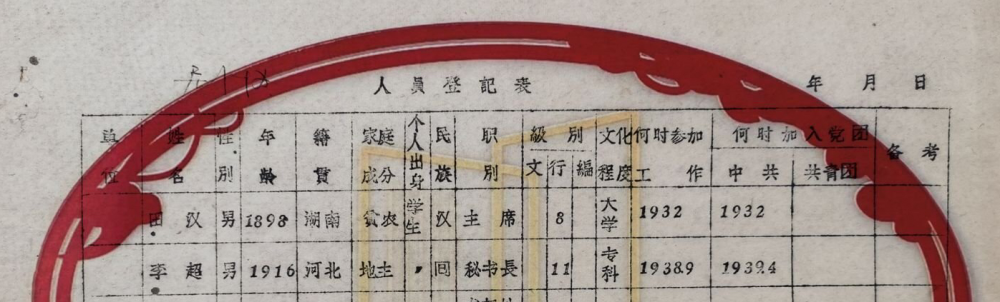 人員登記表 年 月 日
單位 姓名 性別 年齡 籍貫 家庭成分 个人出身 民族 职別 級別 文 行 編 文化程度 何时参加工作 何时加入党团 中共 共青团 备考
田汉 男 1898 湖南 貧农 学生 汉 主席 8 大学 1932 1932
李超 男 1916 河北 地主 〃 回 秘书長 11 专科 1938.9 1939.4